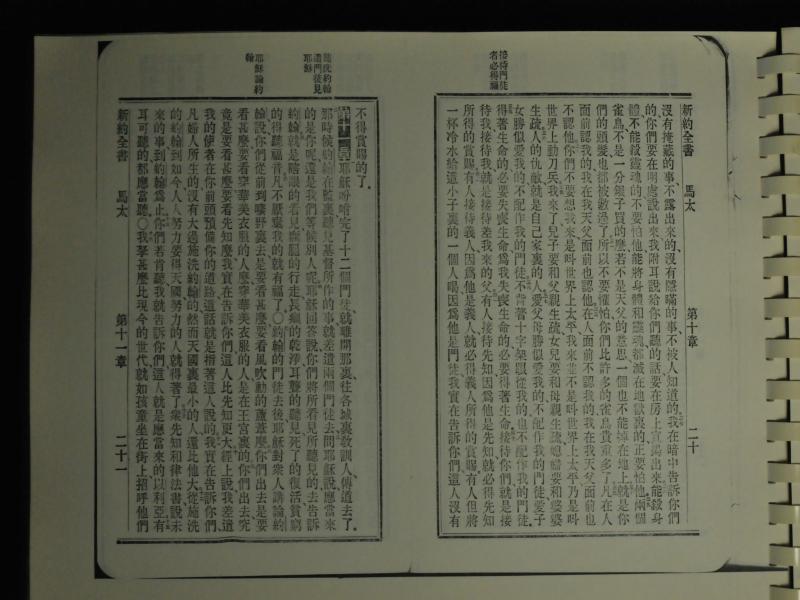 接待門徒
者必得賞
新約全書 馬太 第十章 二十
沒有掩藏的事、不露出來的、沒有隱瞞的事、不被人知道的、我在暗中告訴你們
的、你們要在明處說出來、我附耳說給你們聽的話、要在房上宣揚出來、能殺身
體不能殺靈魂的、不要怕他、能將身體和靈魂都滅在地獄裏的、正要怕他、兩個
雀鳥不是一分銀子買的麼、若不是天父的意思、一個也不能掉在地上、就是你
們的頭髮也都被數過了、所以不要懼怕、你們比許多的雀鳥貴重多了、凡在人
面前認我的、我在我天父面前也認他、在人面前不認我的、我在我天父面前也
不認他、你們不要想我來是叫世界上太平、我來並不是叫世界上太平、乃是叫
世界上動刀兵、我來了、兒子要和父親生疏、女兒要和母親生疏、媳婦要和婆婆
生疏、人的仇敵就是自己家裏的人、愛父母勝似愛我的、不配作我的門徒、愛子
女勝似愛我的、不配作我的門徒、不背著十字架跟從我的、也不配作我的門徒、
得著生命的、必要失喪生命、爲我失喪生命的、必要得著生命、接待你們、就是接
待我、接待我、就是接待差我來的父、有人接待先知、因爲他是先知、就必得先知
所得的賞賜、有人接待義人、因爲他是義人、就必得義人所得的賞賜、有人但將
一杯冷水給這小子裏的一個人喝、因爲他是門徒、我實在告訴你們、這人沒有
施洗約翰
遣門徒見
耶穌
耶穌論約
翰
不得賞賜的了、
耶穌吩咐完了十二個門徒、就離開那裏、往各城裏敎訓人傳道去了、
那時候約翰在監裏聽見基督所作的事、就差遣兩個門徒去問耶穌說、應當來
的是你呢、還是我們等候別人呢、耶穌回答說、你們將所看見所聽見的去告訴
約翰、就是瞎眼的看見、瘸腿的行走、長癩的乾淨、耳聾的聽見、死了的復活、貧窮
的得聽福音、凡不厭棄我的就有福了、〇約翰的門徒去後、耶穌對衆人講論約
翰說、你們從前到曠野裏去、是要看甚麼、要看風吹動的蘆葦麼、你們出去是要
看甚麼、要看穿華美衣服的人麼、穿華美衣服的人、是在王宮裏的、你們出去究
竟是要看甚麼、要看先知麼、我實在告訴你們、這人比先知更大、經上說、我差遣
我的使者在你前頭預備你的道路、這話就是指著這人說的、我實在告訴你們、
凡婦人所生的、沒有大過施洗約翰的、然而天國裏最小的人還比他大、從施洗
的約翰到如今、人人努力要得天國、努力的人就得著了、衆先知和律法書說未
來的事、到約翰爲止、你們若肯聽我、就告訴你們、這人就是應當來的以利亞、有
耳可聽的都應當聽、〇我拏甚麼比現今的世代、就如孩童坐在街上、招呼他們
新約全書 馬太 第十一章 二十一